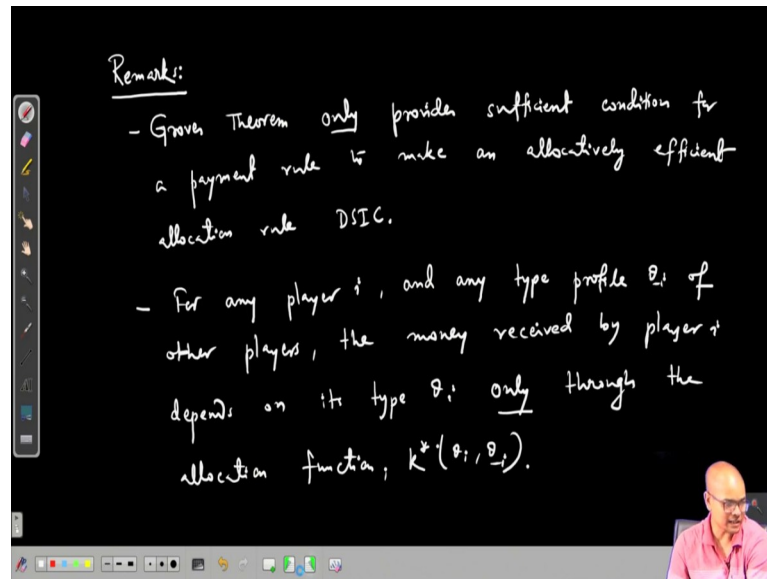 Remarks:
- Groves Theorem only provides sufficient condition for
a payment rule to make an allocatively efficient
allocation rule DSIC.
- For any player i, and any type profile θ₋ᵢ of
other players, the money received by player i
depends on its type θᵢ only through the
allocation function, k*(θᵢ, θ₋ᵢ).